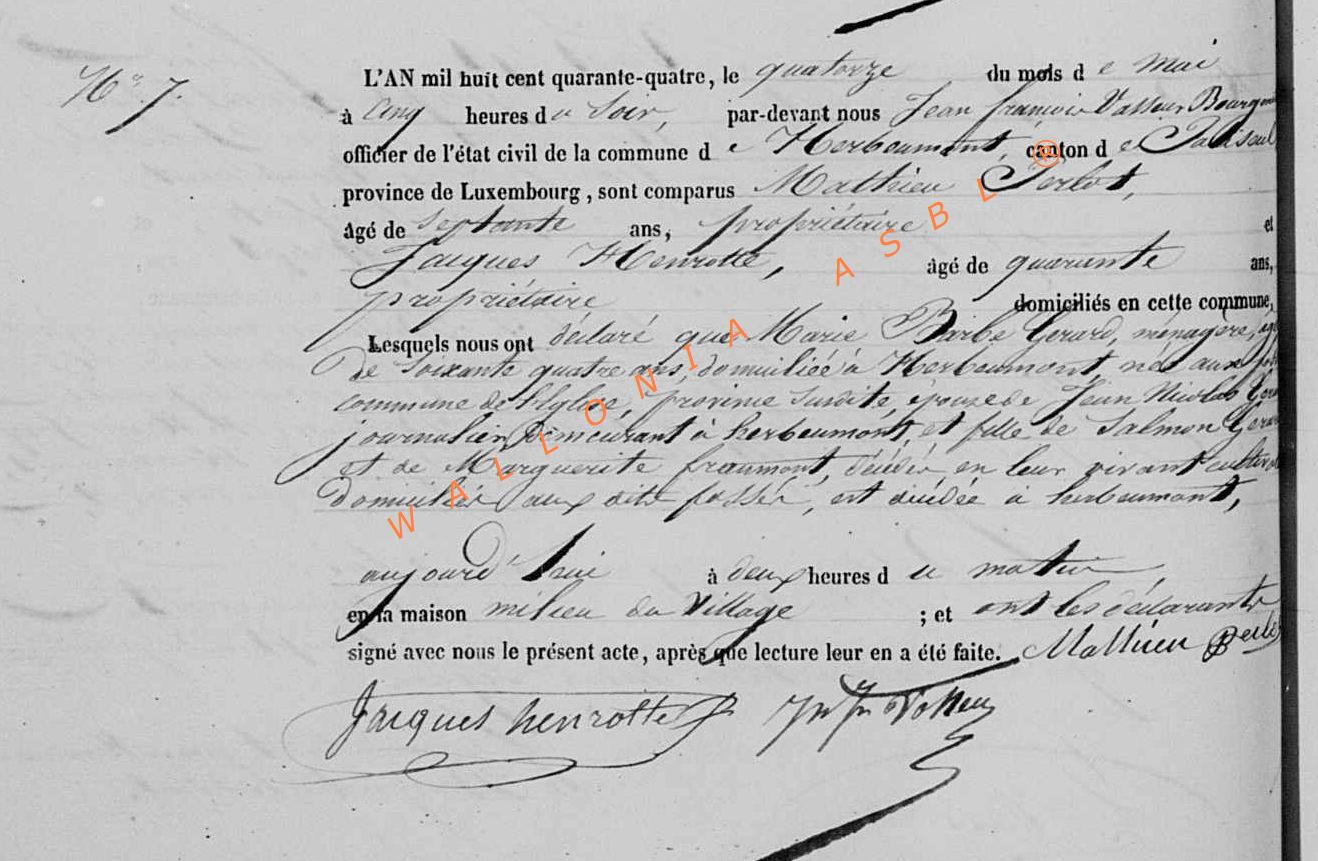 N° 7.
L'AN mil huit cent quarante-quatre, le quatorze du mois de mai
à cinq heures du soir, par-devant nous Jean françois
officier de l'état civil de la commune de Herbeumont, canton de
province de Luxembourg, sont comparus Mathieu Perlot,
âgé de septante ans, propriétaire et
Jacques Henrotte, âgé de quarante ans,
propriétaire domiciliés en cette commune,
Lesquels nous ont déclaré que Marie Barbe Gerard, ménagère,
de soixante quatre ans, domiciliée à Herbeumont, née aux
commune de province susdite, épouse de Jean Nicolas
journalier demeurant à herbeumont, et fille de Salmon
et de Marguerite fraumont, décédés en leur vivant
domiciliés aux dits fossés, est décédée à herbeumont,
aujourd'hui à deux heures du matin
en la maison milieu du Village ; et ont les déclarants
signé avec nous le présent acte, après que lecture leur en a été faite. Mathieu
Jacques henrotte
WALLONIA ASBL ®